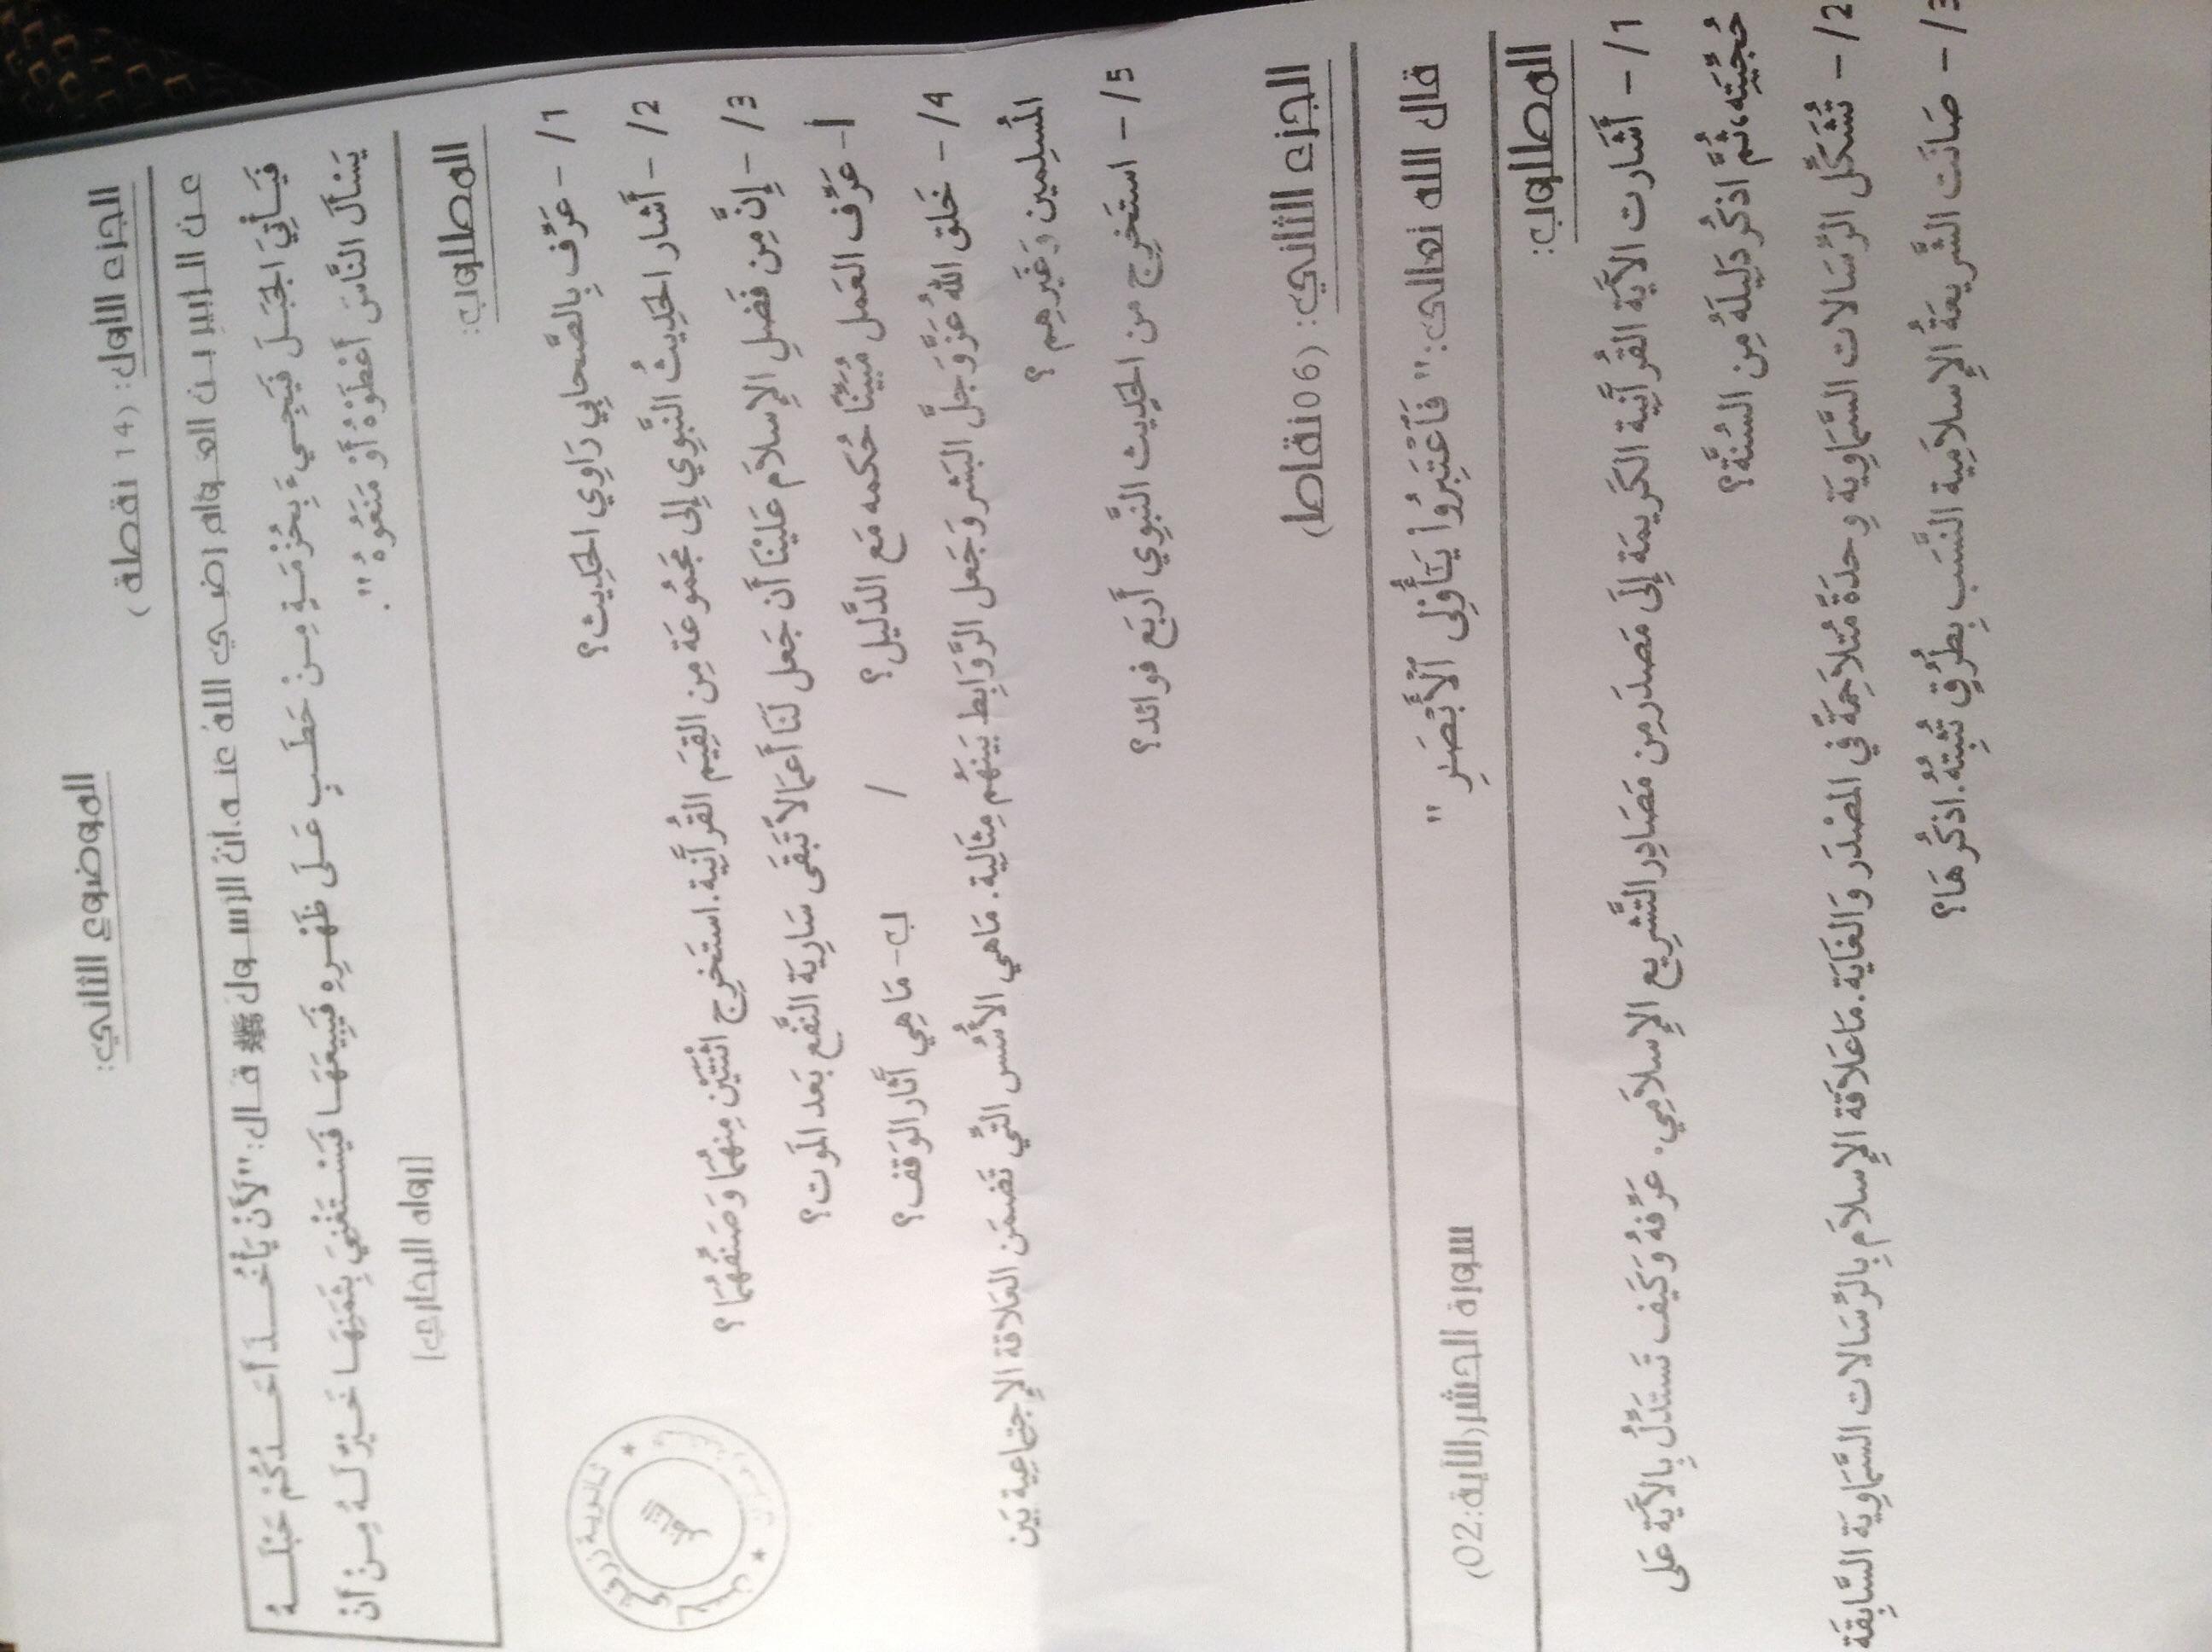 الموضوع الثاني:
الجزء الأول: (14 نقطة)
عن الزبير بن العوام رضي الله عنه، أن الرسول ﷺ قال:"لَأَنْ يَأْخُذَ أَحَدُكُمْ حَبْلَهُ
فَيَأْتِيَ الجَبَلَ فَيَجِيءَ بِحُزْمَةٍ مِنْ حَطَبٍ عَلَى ظَهْرِهِ فَيَبِيعَهَا فَيَسْتَغْنِيَ بِثَمَنِهَا خَيْرٌ لَهُ مِنْ أَنْ
يَسْأَلَ النَّاسَ أَعْطَوْهُ أَوْ مَنَعُوهُ". [رواه البخاري]
المطلوب:
1/- عَرِّف بِالصَّحابِي رَاوِي الحَدِيث؟
2/- أَشار الحَدِيثُ النَّبَوِي إِلى مَجمُوعَة مِن القِيَم القُرآنِية. استَخرِج اثْنَتَيْن مِنهُمَا وَصَنِّفهُمَا؟
3/- إِنَّ مِن فَضلِ الإِسلاَم عَلَيْنَا أَن جَعَل لَنَا أَعمَالاً تَبقَى سَارِيَة النَّفْع بَعد المَوت؟
أ- عَرِّف العَمَل مُبَيِّنًا حُكمه مَع الدَّلِيل؟ / ب- مَا هِي آثَار الوَقف؟
4/- خَلق اللهُ عَزَّوَجَلَّ البَشر وَجَعل الرَّوَابِط بَينَهُم مِثَالِية. مَاهي الأُسُس التِّي تَضمَن العَلاَقة الإِجتِمَاعِية بَين
المُسلِمين وَغَيرهِم؟
5/- استَخرِج من الحَدِيث النَّبَوِي أَربَع فوائد؟
الجزء الثاني: (06نقاط)
قال الله تعالى:" فَٱعْتَبِرُواْ يَٰٓأُوْلِى ٱلْأَبْصَٰرِ " سورة الحشر(الآية:02)
المطلوب:
1/- أَشَارت الآيَة القُرآنِية الكَرِيمَة إِلَى مَصدَر مِن مَصَادِر التَّشرِيع الإِسلاَمِي. عَرِّفهُ وَكَيف تَستَدِلُّ بِالآيَة عَلى
حُجِّيَّتِه، ثُمَّ اذكُر دَلِيلَهُ مِن السُنَّة؟
2/- تُشَكِّل الرِّسَالات السَّمَاوِيَة وِحدَةً مُتَلاَحِمَةً في المَصْدَر وَالغَايَة. مَاعَلاَقَة الإِسلاَمِ بِالرِّسَالات السَّمَاوِيَة السَّابِقَة
3/- صَانَت الشَّرِيعَةُ الإِسلاَمِية النَّسَب بِطُرُقٍ تُثبِتُهُ. اذكُرهَا؟